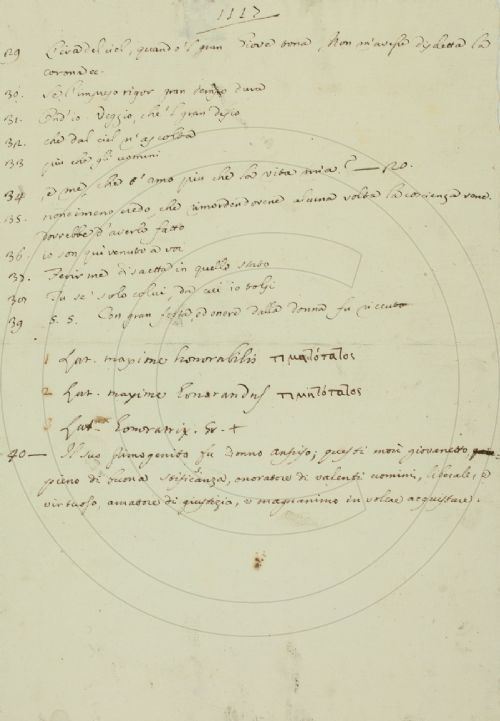 1117
29 L'ira del ciel, quando 'l gran Giove tona, Non m'avesse disdetta la
corona ec.
30. Se l'impreso rigor gran tempo dura
31. Ond'io veggio, che 'l gran desio
32. che dal ciel n'ascolta
33 più che gli uomini
34 e me, che t'amo più che la vita mia? — no.
35. nondimeno credo che rimordendovene alcuna volta la coscienza
dovrebbe d'averlo fatto
36. io son qui venuto a voi
37. Ferir me di saetta in quello stato
38 Tu se' solo colui, da cui io tolsi
39 S. S. Con gran festa, ed onore dalla donna fu ricevuto
1 Lat. maxime honorabilis τιμιώτατος
2 Lat. maxime honorandus τιμιώτατος
3 Lat. honoratrix. Gr. +
40 — Il suo primogenito fu donno Anfuso; questi morì giovanetto
pieno di buona stificanza, onoratore di valenti uomini, liberale, e
virtuoso, amatore di giustizia, e magnanimo in volere acquistare.